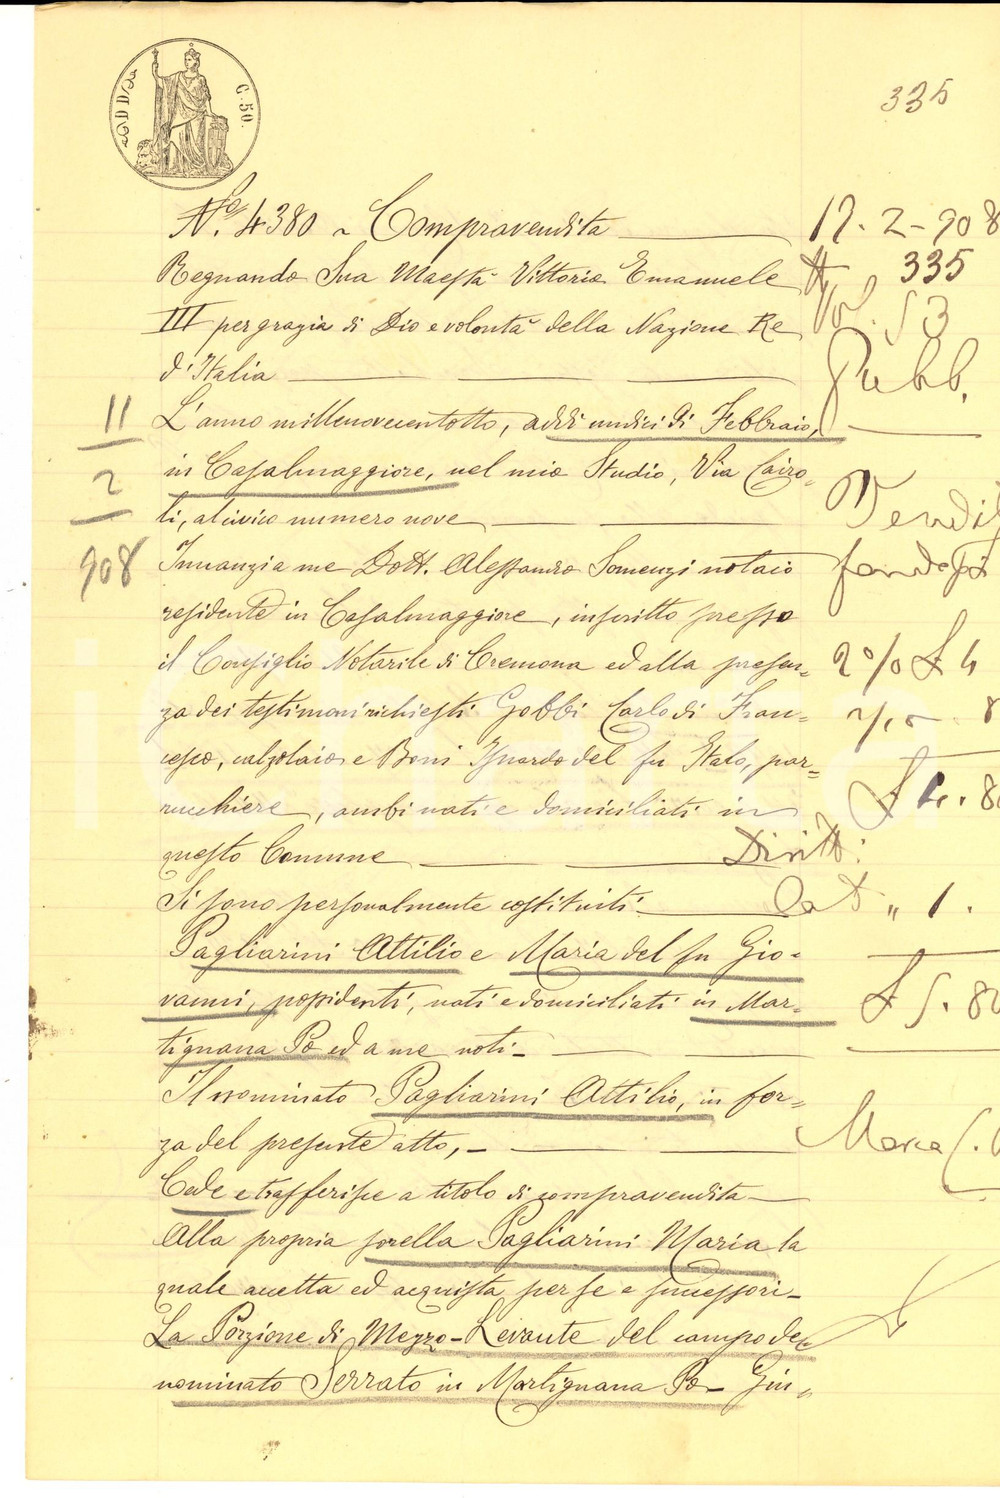 C. 50.
335
N.º 4380 ~ Compravendita
Regnando Sua Maestà Vittorio Emanuele
III per grazia di Dio e volontà della Nazione Re
d'Italia
L'anno millenovecentotto, addì undici di Febbraio,
in Casalmaggiore, nel mio Studio, Via Cairo-
li, al civico numero nove
Innanzi a me Dott. Alessandro Somenzi notaio
residente in Casalmaggiore, inscritto presso
il Consiglio Notarile di Cremona ed alla presen-
za dei testimoni richiesti Gobbi Carlo di Fran-
cesco, calzolaio e Boni Isnardo del fu Italo, par-
rucchiere, ambi nati e domiciliati in
questo Comune
Si sono personalmente costituiti
Pagliarini Attilio e Maria del fu Gio-
vanni, possidenti, nati e domiciliati in Mar-
tignana Po ed a me noti -
Il nominato Pagliarini Attilio, in for-
za del presente atto, -
Cede e trasferisce a titolo di compravendita
Alla propria sorella Pagliarini Maria la
quale accetta ed acquista per se e successori -
La Porzione di Mezzo-Levante del campo de-
nominato Serrato in Martignana Po - Giu-
11
2
908
17. 2 - 908
335
Vol. 53
Pubb.
Vendit
2% £ 4
£ 4. 80
Diritti:
" 1.
£ 5. 80